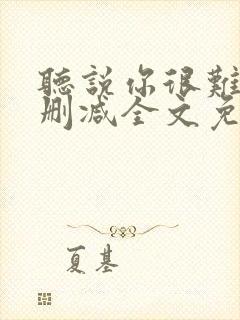 聽說你很難
刪減全文免
夏基